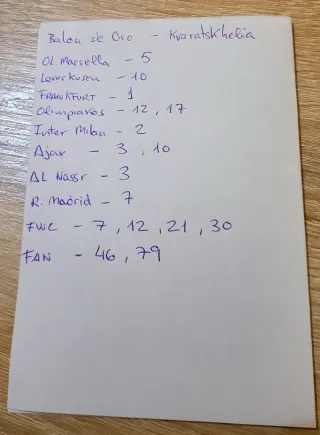 Balon de Oro - Kvaratskhelia
OL. Marsella - 5
Leverkusen - 10
FRANKFURT - 1
Olimpiavos - 12, 17
Inter Milan - 2
Ajax - 3, 10
AL Nassr - 3
R. Madrid - 7
FWC - 7, 12, 21, 30
FAN - 46, 79